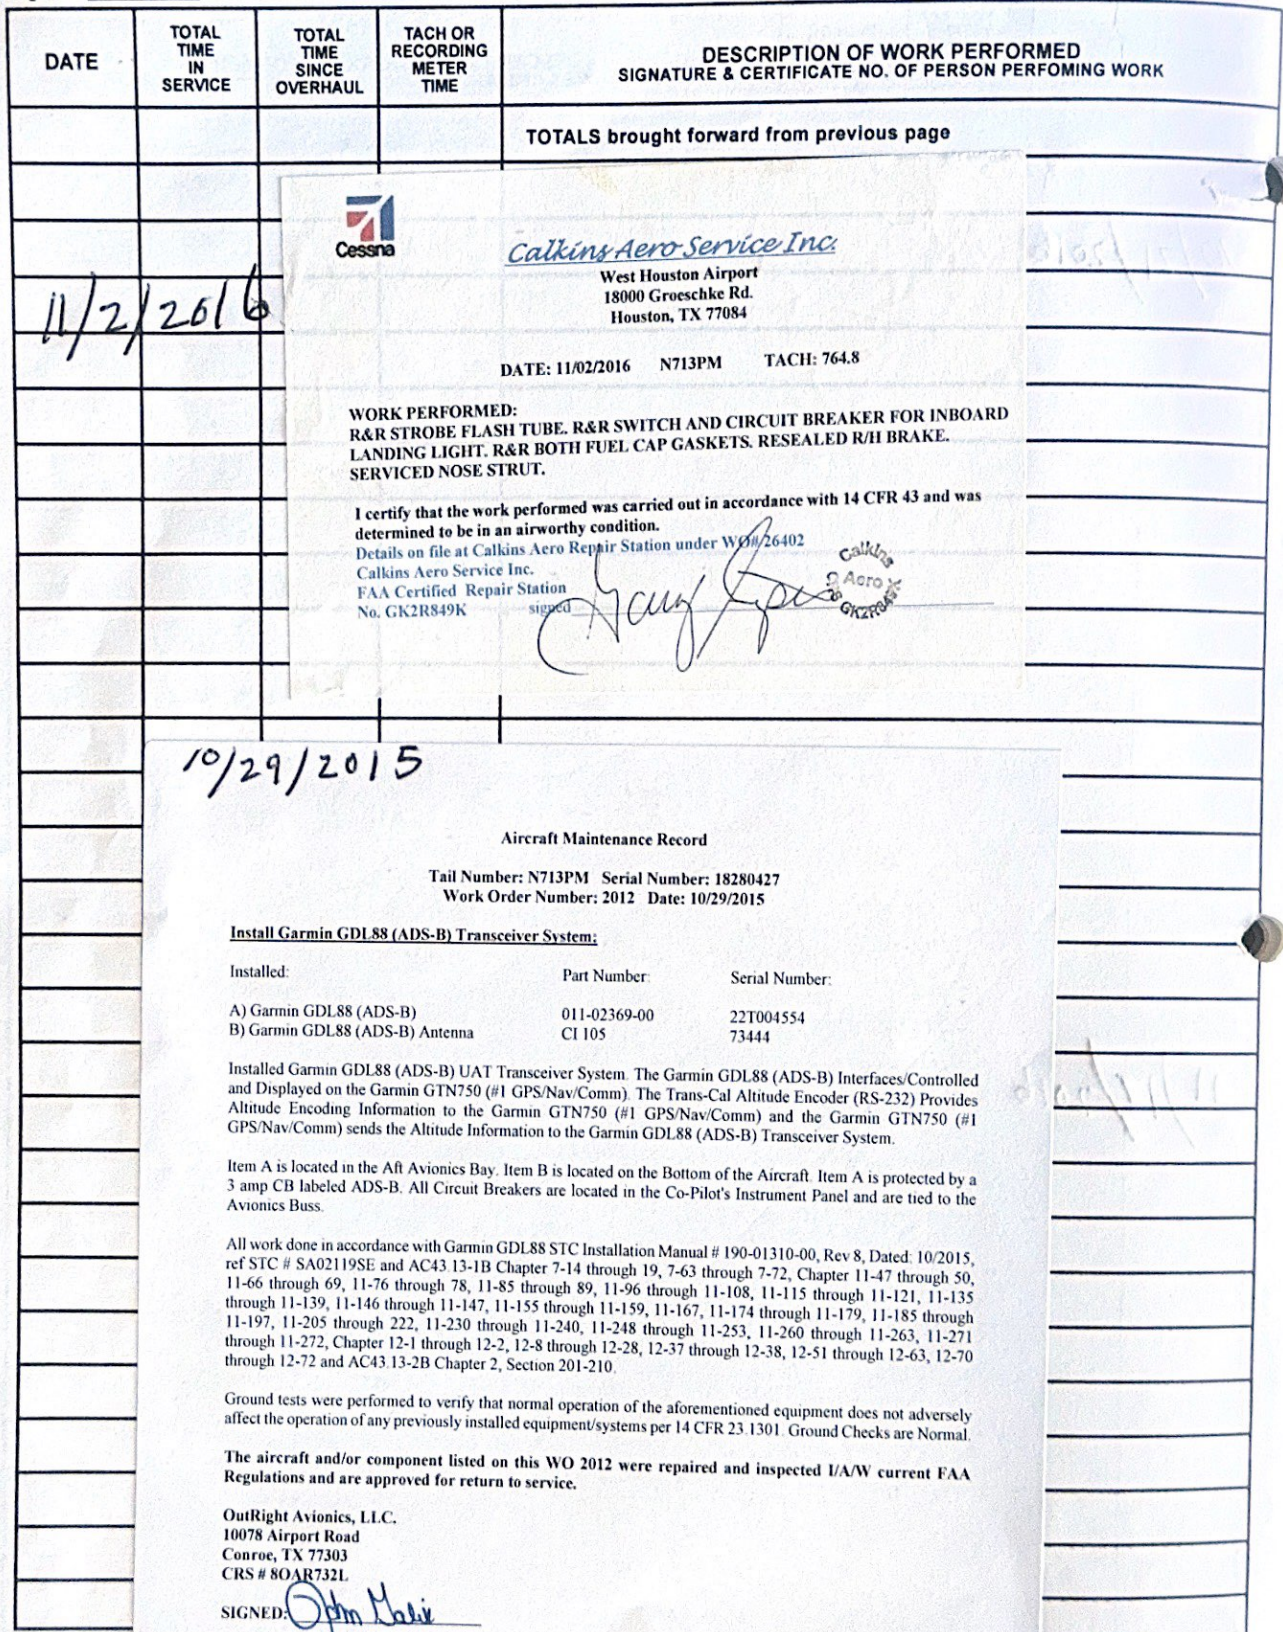 DATE
TOTAL TIME IN SERVICE
TOTAL TIME SINCE OVERHAUL
TACH OR RECORDING METER TIME
DESCRIPTION OF WORK PERFORMED
SIGNATURE & CERTIFICATE NO. OF PERSON PERFOMING WORK
TOTALS brought forward from previous page
Cessna
Calkins Aero Service Inc.
West Houston Airport
18000 Groeschke Rd.
Houston, TX 77084
11/2/2016
DATE: 11/02/2016 N713PM TACH: 764.8
WORK PERFORMED:
R&R STROBE FLASH TUBE. R&R SWITCH AND CIRCUIT BREAKER FOR INBOARD
LANDING LIGHT. R&R BOTH FUEL CAP GASKETS. RESEALED R/H BRAKE.
SERVICED NOSE STRUT.
I certify that the work performed was carried out in accordance with 14 CFR 43 and was
determined to be in an airworthy condition.
Details on file at Calkins Aero Repair Station under WO# 26402
Calkins Aero Service Inc.
FAA Certified Repair Station
No. GK2R849K signed
Calkins
Aero
GK2R849K
10/29/2015
Aircraft Maintenance Record
Tail Number: N713PM Serial Number: 18280427
Work Order Number: 2012 Date: 10/29/2015
Install Garmin GDL88 (ADS-B) Transceiver System:
Installed: Part Number: Serial Number:
A) Garmin GDL88 (ADS-B) 011-02369-00 22T004554
B) Garmin GDL88 (ADS-B) Antenna CI 105 73444
Installed Garmin GDL88 (ADS-B) UAT Transceiver System. The Garmin GDL88 (ADS-B) Interfaces/Controlled
and Displayed on the Garmin GTN750 (#1 GPS/Nav/Comm). The Trans-Cal Altitude Encoder (RS-232) Provides
Altitude Encoding Information to the Garmin GTN750 (#1 GPS/Nav/Comm) and the Garmin GTN750 (#1
GPS/Nav/Comm) sends the Altitude Information to the Garmin GDL88 (ADS-B) Transceiver System.
Item A is located in the Aft Avionics Bay. Item B is located on the Bottom of the Aircraft. Item A is protected by a
3 amp CB labeled ADS-B. All Circuit Breakers are located in the Co-Pilot's Instrument Panel and are tied to the
Avionics Buss.
All work done in accordance with Garmin GDL88 STC Installation Manual # 190-01310-00, Rev 8, Dated: 10/2015,
ref STC # SA02119SE and AC43.13-1B Chapter 7-14 through 19, 7-63 through 7-72, Chapter 11-47 through 50,
11-66 through 69, 11-76 through 78, 11-85 through 89, 11-96 through 11-108, 11-115 through 11-121, 11-135
through 11-139, 11-146 through 11-147, 11-155 through 11-159, 11-167, 11-174 through 11-179, 11-185 through
11-197, 11-205 through 222, 11-230 through 11-240, 11-248 through 11-253, 11-260 through 11-263, 11-271
through 11-272, Chapter 12-1 through 12-2, 12-8 through 12-28, 12-37 through 12-38, 12-51 through 12-63, 12-70
through 12-72 and AC43.13-2B Chapter 2, Section 201-210.
Ground tests were performed to verify that normal operation of the aforementioned equipment does not adversely
affect the operation of any previously installed equipment/systems per 14 CFR 23.1301. Ground Checks are Normal.
The aircraft and/or component listed on this WO 2012 were repaired and inspected I/A/W current FAA
Regulations and are approved for return to service.
OutRight Avionics, LLC.
10078 Airport Road
Conroe, TX 77303
CRS # 8OAR732L
SIGNED: John